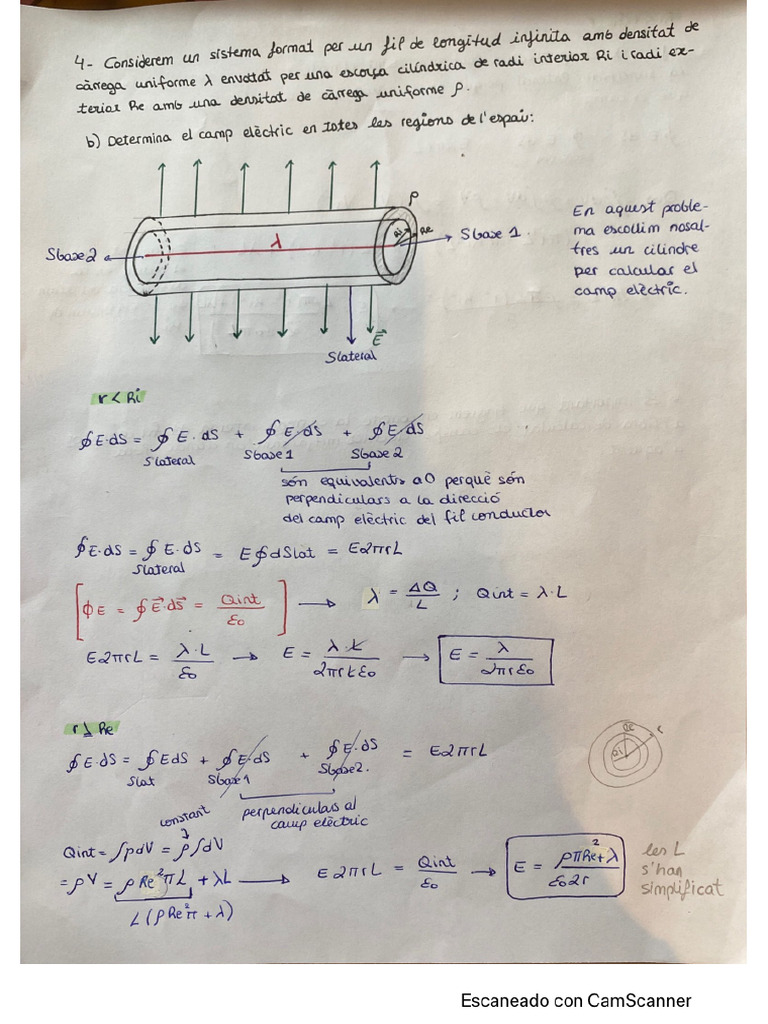 4- Considerem un sistema format per un fil de longitud infinita amb densitat de
càrrega uniforme λ envoltat per una escorça cilíndrica de radi interior Ri i radi ex-
terior Re amb una densitat de càrrega uniforme ρ.
b) Determina el camp elèctric en totes les regions de l'espai:
ρ
Ri
Re
λ
Sbase 1.
Sbase2
E⃗
Slateral
En aquest proble-
ma escollim nosal-
tres un cilindre
per calcular el
camp elèctric.
r < Ri
∮E·dS = ∮E·dS + ∮E·dS + ∮E·dS
Slateral Sbase1 Sbase2
són equivalents a 0 perquè són
perpendiculars a la direcció
del camp elèctric del fil conductor
∮E·dS = ∮E·dS = E∮dSlat = E2πrL
Slateral
[ϕE = ∮E⃗·dS⃗ = Qint/ε0] → λ = ΔQ/L ; Qint = λ·L
E2πrL = λ·L/ε0 → E = λ·L/2πrLε0 → E = λ/2πrε0
r ≥ Re
∮E·dS = ∮EdS + ∮E·dS + ∮E·dS = E2πrL
Slat Sbase1 Sbase2.
perpendiculas al
camp elèctric
Re
Ri
r
constant
Qint = ∫ρdV = ρ∫dV
= ρV = ρRe²πL + λL → E2πrL = Qint/ε0 → E = ρπRe²+λ/ε02r
L(ρRe²π + λ)
les L
s'han
simplificat
Escaneado con CamScanner